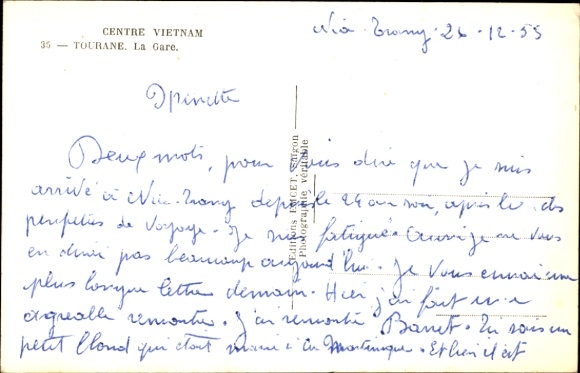 CENTRE VIETNAM
35 — TOURANE. La Gare.
Nia-Trang 26-12-55
Editions EMCET, Saigon
Photographie véritable
Deux mots, pour vous dire que je suis
arrivé à Nia-Trang depuis le 24 au soir, après des
de voyage. Je suis fatigué. Aussi je ne vous
en dirai pas beaucoup aujourd'hui. Je vous enverrai une
plus longue lettre demain. Hier j'ai fait une
agréable rencontre. J'ai rencontré Tu sais un
petit blond qui était marié à la Martinique. Et bien il est